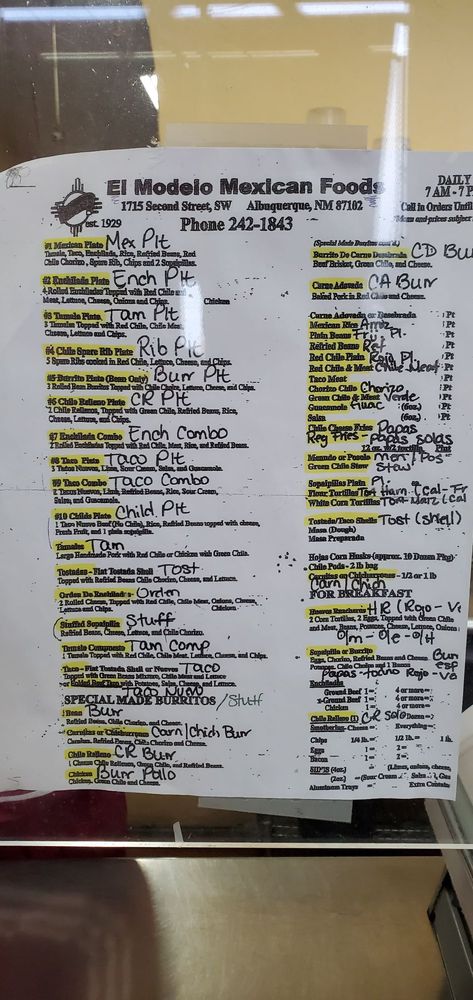 El Modelo Mexican Foods
1715 Second Street, SW Albuquerque, NM 87102
est. 1929
Phone 242-1843
DAILY
7 AM - 7 P
Call in Orders Until
#1 Mexican Plate Mex Plt
Tamale, Taco, Enchilada, Rice, Refried Beans, Red
Chile Chorizo, Spare Rib, Chips and 2 Sopaipillas.
#2 Enchilada Plate Ench Plt
4 Rolled Enchiladas Topped with Red Chile and
Meat, Lettuce, Cheese, Onions and Chips. Chicken
#3 Tamale Plate Tam Plt
3 Tamales Topped with Red Chile, Chile Meat,
Cheese, Lettuce and Chips.
#4 Chile Spare Rib Plate Rib Plt
5 Spare Ribs cooked in Red Chile, Lettuce, Cheese, and Chips.
#5 Burrito Plate (Bean Only) Burr Plt
#6 Chile Relleno Plate CR Plt
2 Chile Rellenos, Topped with Green Chile, Refried Beans, Rice,
Cheese, Lettuce, and Chips.
#7 Enchilada Combo Ench Combo
2 Rolled Enchiladas Topped with Red Chile, Meat, Rice, and Refried Beans.
#8 Taco Plate Taco Plt
3 Tacos Nuevos, Lime, Sour Cream, Salsa, and Guacamole.
#9 Taco Combo Taco Combo
2 Tacos Nuevos, Lime, Refried Beans, Rice, Sour Cream,
Salsa, and Guacamole.
#10 Childs Plate Child Plt
1 Taco Nuevo Beef (No Chile), Rice, Refried Beans topped with cheese,
Fresh Fruit, and 1 plain sopaipilla.
Tamales Tam
Large Handmade Pork with Red Chile or Chicken with Green Chile.
Tostadas - Flat Tostada Shell Tost
Topped with Refried Beans Chile Chorizo, Cheese, and Lettuce.
Orden De Enchilada's - Orden
2 Rolled Cheese, Topped with Red Chile, Chile Meat, Onions, Cheese,
Lettuce and Chips. Chicken
Stuffed Sopaipilla Stuff
Refried Beans, Cheese, Lettuce, and Chile Chorizo.
Tamale Compuesto Tam Comp
1 Tamale Topped with Red Chile, Chile Meat, Lettuce, Cheese, and Chips.
Taco - Flat Tostada Shell or Nuevos Taco
Topped with Green Beans Mixture, Chile Meat and Lettuce
or Folded Beef Taco with Potatoes, Salsa, Cheese, and Lettuce.
Taco Nuevo
SPECIAL MADE BURRITOS /Stuff
Bean Burr
Refried Beans, Chile Chorizo, and Cheese.
Carnitas or Chicharrones Carn/Chich Burr
Carnitas, Refried Beans, Chile Chorizo and Cheese.
Chile Relleno CR Burr
1 Cheese Chile Rellenos, Green Chile, and Refried Beans.
Chicken Burr Pollo
Chicken, Green Chile and Cheese.
Burrito De Carne Desebrada CD Bu
Beef Brisket, Green Chile, and Cheese.
Carne Adovada CA Burr
Baked Pork in Red Chile and Cheese.
Carne Adovada or Desebrada Pt
Mexican Rice Arroz Pt
Plain Beans Pl. Pt
Refried Beans Ref Pt
Red Chile Plain Rojo Pl. Pt
Red Chile & Meat Chile Meat Pt
Taco Meat Pt
Chorizo Chile Chorizo Pt
Green Chile & Meat Verde Pt
Guacamole Guac (6oz.) Pt
Salsa (6oz.) Pt
Chile Cheese Fries Papas
Reg Fries - Papas solas
12 oz. w/2 tortillas Pint
Menudo or Posole Men/Pos
Green Chile Stew Stew
Sopaipillas Plain Pl.
Flour Tortillas Tort Harn. (Cal-Fr
White Corn Tortillas Tort Marz (Cal
Tostada/Taco Shells Tost (shell)
Masa (Dough)
Masa Preparada
Hojas Corn Husks-(approx. 10 Dozen Pkg)
Chile Pods - 2 lb bag
Carnitas or Chicharrones - 1/2 or 1 lb
Carn/Chich
FOR BREAKFAST
Huevos Rancheros HR (Rojo - Ve
2 Corn Tortillas, 2 Eggs, Topped with Green Chile
and Meat, Beans, Potatoes, Cheese, Lettuce, Onions
O/m - O/e - O/H
Sopaipilla or Burrito Burr
Eggs, Chorizo, Refried Beans and Cheese
Potatoes, Chile Choice and 1 Bacon
Papas - tocino Rojo - Ve
Enchilada
Ground Beef 1= 4 or more=
Ground Beef 1= 4 or more=
Chicken 1= 4 or more=
Chile Relleno (1) CR Solo Dozen=
Smotherings - Cheese= Everything=
Chips 1/4 lb. = 1/2 lb. = 1 lb.
Eggs 1= 2=
Bacon 1= 2=
SIDES (4oz.) = (Limes, onions, cheese,
(2oz.) = (Sour Cream) Salsa Gua
Aluminum Trays = Extra Contain